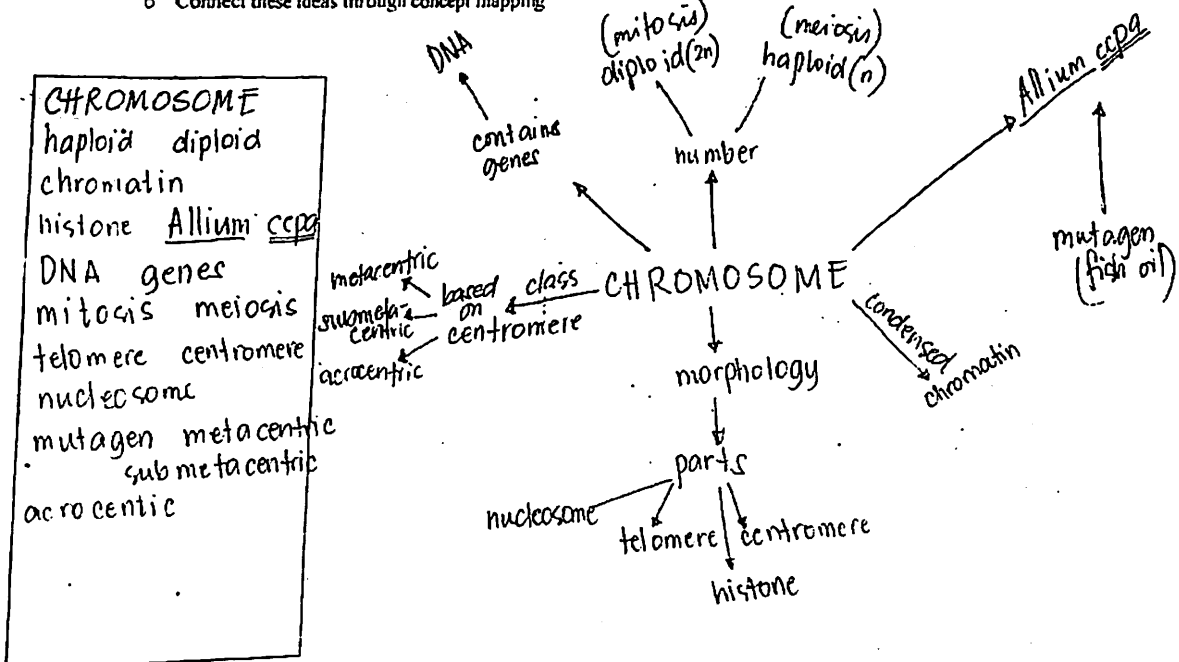 6 Connect these ideas through concept mapping
CHROMOSOME
haploid diploid
chromatin
histone Allium ccpa
DNA genes
mitosis meiosis
telomere centromere
nucleosome
mutagen metacentric
submetacentric
acrocentic
DNA
contains
genes
(mitosis)
diploid(2n)
(meiosis)
haploid(n)
number
Allium ccpa
mutagen
(fish oil)
CHROMOSOME
class
based
on
centromere
metacentric
submeta-
centric
acrocentric
condensed
chromatin
morphology
parts
nucleosome
telomere
centromere
histone